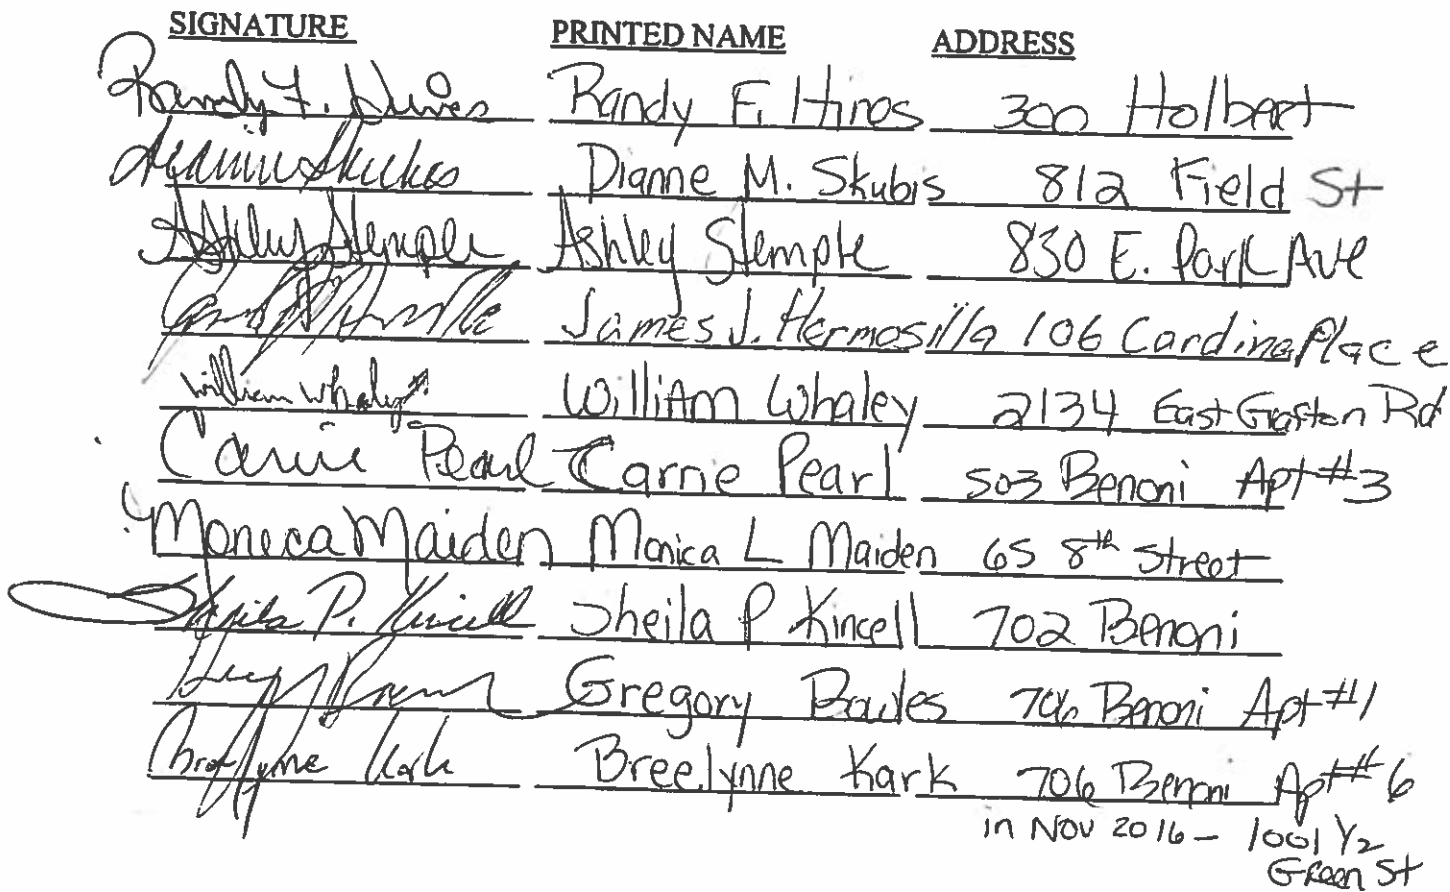 SIGNATURE PRINTED NAME ADDRESS
Randy F. Hines Randy F. Hines 300 Holbert
Dianne Skubis Dianne M. Skubis 812 Field St
Ashley Stemple Ashley Stemple 830 E. Park Ave
James J. Hermosilla 106 Cardina Place
William Whaley William Whaley 2134 East Grafton Rd
Carrie Pearl Carrie Pearl 503 Benoni Apt #3
Moneca Maiden Monica L Maiden 65 8th Street
Sheila P. Kincell Sheila P Kincell 702 Benoni
Gregory Bowles 706 Benoni Apt #1
Breelynne Kark Breelynne Kark 706 Benoni Apt #6
in Nov 2016 - 1001 1/2
Green St